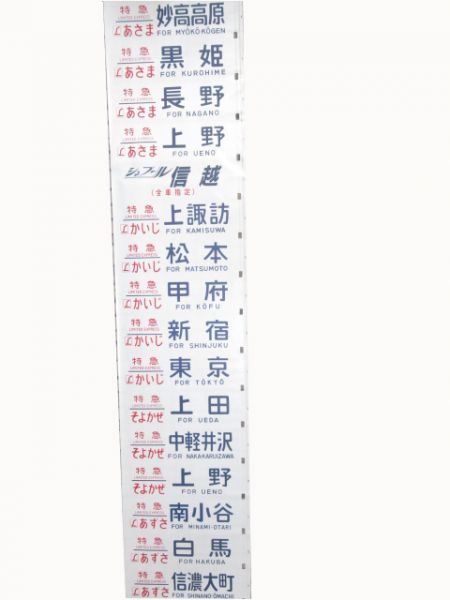 特急 妙高高原
LIMITED EXPRESS
あさま FOR MYŌKŌ-KŌGEN
特急 黒姫
LIMITED EXPRESS
あさま FOR KUROHIME
特急 長野
LIMITED EXPRESS
あさま FOR NAGANO
特急 上野
LIMITED EXPRESS
あさま FOR UENO
シュプール 信越
(全車指定)
特急 上諏訪
LIMITED EXPRESS
かいじ FOR KAMISUWA
特急 松本
LIMITED EXPRESS
かいじ FOR MATSUMOTO
特急 甲府
LIMITED EXPRESS
かいじ FOR KŌFU
特急 新宿
LIMITED EXPRESS
かいじ FOR SHINJUKU
特急 東京
LIMITED EXPRESS
かいじ FOR TŌKYŌ
特急 上田
LIMITED EXPRESS
そよかぜ FOR UEDA
特急 中軽井沢
LIMITED EXPRESS
そよかぜ FOR NAKAKARUIZAWA
特急 上野
LIMITED EXPRESS
そよかぜ FOR UENO
特急 南小谷
LIMITED EXPRESS
あずさ FOR MINAMI-OTARI
特急 白馬
LIMITED EXPRESS
あずさ FOR HAKUBA
特急 信濃大町
LIMITED EXPRESS
あずさ FOR SHINANO-ŌMACHI